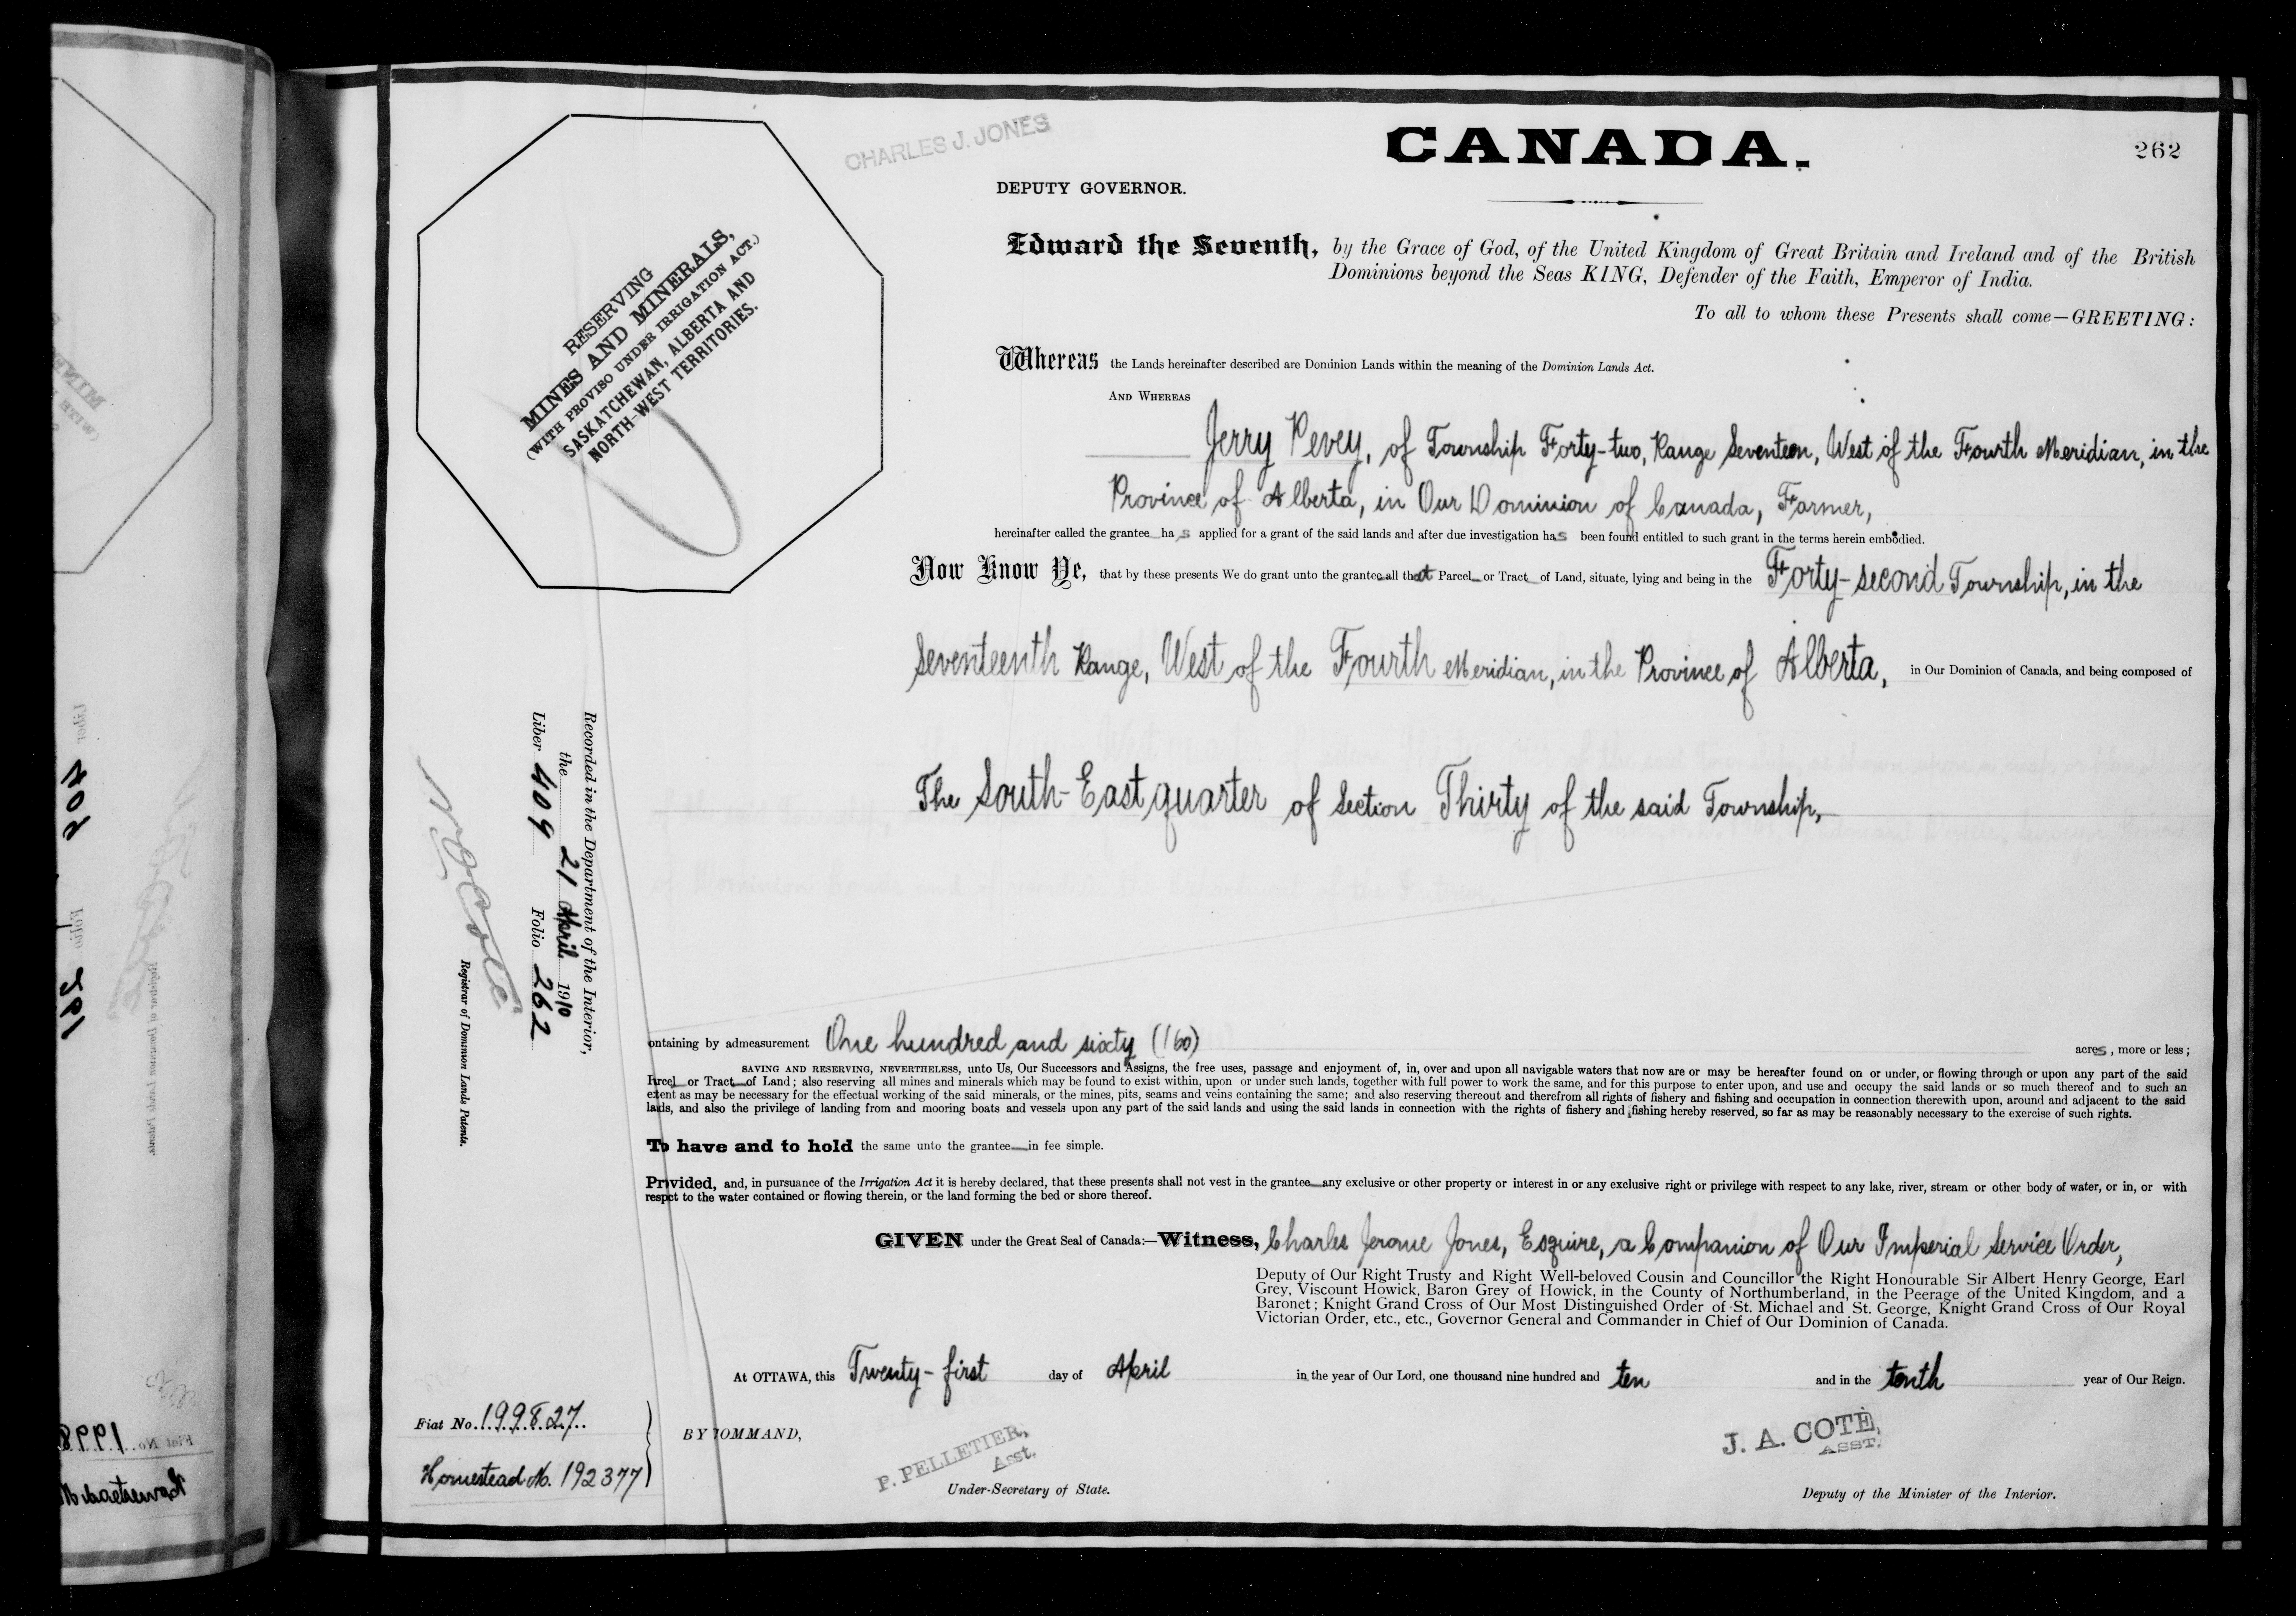 CHARLES J. JONES
CANADA.
262
DEPUTY GOVERNOR.
Edward the Seventh, by the Grace of God, of the United Kingdom of Great Britain and Ireland and of the British
Dominions beyond the Seas KING, Defender of the Faith, Emperor of India.
To all to whom these Presents shall come—GREETING:
Whereas the Lands hereinafter described are Dominion Lands within the meaning of the Dominion Lands Act.
AND WHEREAS
Jerry Pevey, of Township Forty-two, Range Seventeen, West of the Fourth Meridian, in the
Province of Alberta, in Our Dominion of Canada, Farmer,
hereinafter called the grantee has applied for a grant of the said lands and after due investigation has been found entitled to such grant in the terms herein embodied.
Now Know Ye, that by these presents We do grant unto the grantee all that Parcel or Tract of Land, situate, lying and being in the Forty-second Township, in the
Seventeenth Range, West of the Fourth Meridian, in the Province of Alberta, in Our Dominion of Canada, and being composed of
The South-East quarter of Section Thirty of the said Township,
ontaining by admeasurement One hundred and sixty (160) acres, more or less;
SAVING AND RESERVING, NEVERTHELESS, unto Us, Our Successors and Assigns, the free uses, passage and enjoyment of, in, over and upon all navigable waters that now are or may be hereafter found on or under, or flowing through or upon any part of the said
Parcel or Tract of Land; also reserving all mines and minerals which may be found to exist within, upon or under such lands, together with full power to work the same, and for this purpose to enter upon, and use and occupy the said lands or so much thereof and to such an
extent as may be necessary for the effectual working of the said minerals, or the mines, pits, seams and veins containing the same; and also reserving thereout and therefrom all rights of fishery and fishing and occupation in connection therewith upon, around and adjacent to the said
lands, and also the privilege of landing from and mooring boats and vessels upon any part of the said lands and using the said lands in connection with the rights of fishery and fishing hereby reserved, so far as may be reasonably necessary to the exercise of such rights.
To have and to hold the same unto the grantee in fee simple.
Provided, and, in pursuance of the Irrigation Act it is hereby declared, that these presents shall not vest in the grantee any exclusive or other property or interest in or any exclusive right or privilege with respect to any lake, river, stream or other body of water, or in, or with
respect to the water contained or flowing therein, or the land forming the bed or shore thereof.
GIVEN under the Great Seal of Canada:—Witness, Charles Jerome Jones, Esquire, a Companion of Our Imperial Service Order,
Deputy of Our Right Trusty and Right Well-beloved Cousin and Councillor the Right Honourable Sir Albert Henry George, Earl
Grey, Viscount Howick, Baron Grey of Howick, in the County of Northumberland, in the Peerage of the United Kingdom, and a
Baronet; Knight Grand Cross of Our Most Distinguished Order of St. Michael and St. George, Knight Grand Cross of Our Royal
Victorian Order, etc., etc., Governor General and Commander in Chief of Our Dominion of Canada.
At OTTAWA, this Twenty-first day of April in the year of Our Lord, one thousand nine hundred and ten and in the tenth year of Our Reign.
BY COMMAND,
P. PELLETIER,
Asst.
Under-Secretary of State.
J. A. COTÉ,
ASST.
Deputy of the Minister of the Interior.
RESERVING
MINES AND MINERALS,
(WITH PROVISO UNDER IRRIGATION ACT.)
SASKATCHEWAN, ALBERTA AND
NORTH-WEST TERRITORIES.
Recorded in the Department of the Interior,
the 21 April 1910
Liber 409 Folio 262
Registrar of Dominion Lands Patents.
Fiat No. 199827
Homestead No. 192377